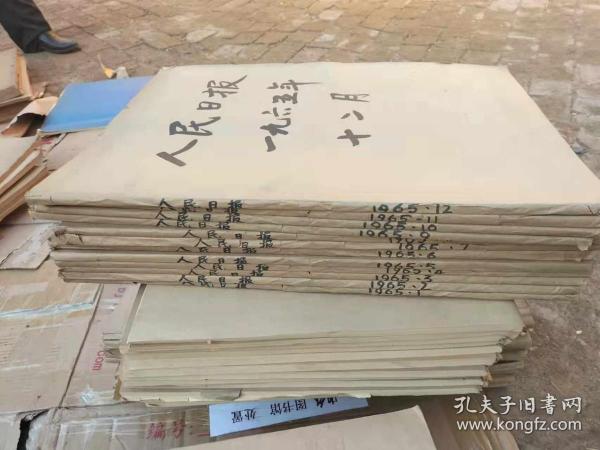 人民日报
一九六五年
十二月
人民日报 1965.12
人民日报 1965.11
人民日报 1965.10
人民日报 1965.9
人民日报 1965.7
人民日报 1965.6
人民日报 1965.5
人民日报
人民日报 1965.3
1965.2
1965.1
图书馆 处置
编号:
com
孔夫子旧书网
www.kongfz.com